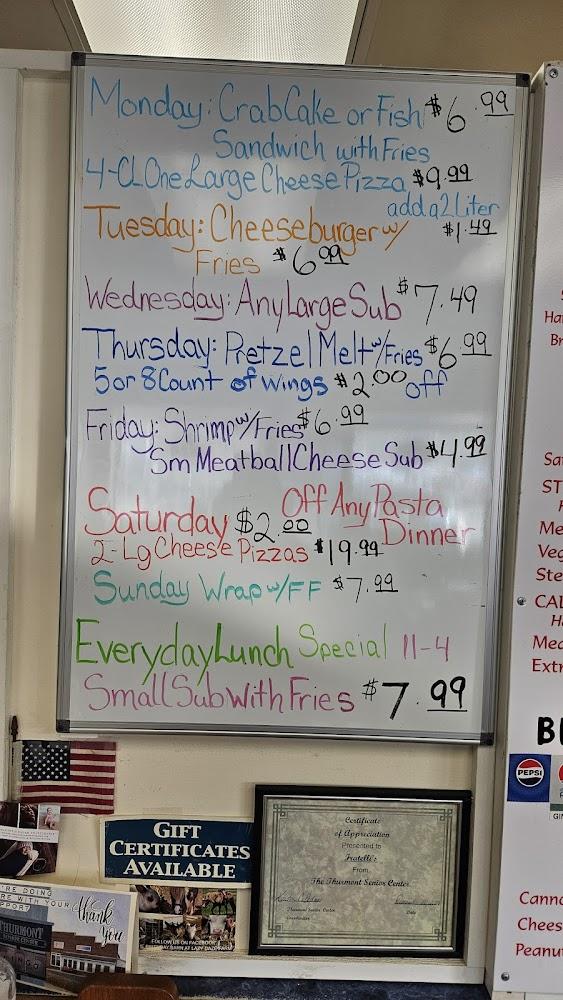 Monday: Crab Cake or Fish $6.99
Sandwich with Fries
4-CL One Large Cheese Pizza $9.99
add a 2 Liter
$1.49
Tuesday: Cheeseburger w/
Fries $6.99
Wednesday: Any Large Sub $7.49
Thursday: Pretzel Melt w/Fries $6.99
5 or 8 Count of Wings $2.00 off
Friday: Shrimp w/Fries $6.99
Sm Meatball Cheese Sub $4.99
Saturday $2.00 Off Any Pasta
Dinner
2-Lg Cheese Pizzas $19.99
Sunday Wrap w/FF $7.99
Everyday Lunch Special 11-4
Small Sub With Fries $7.99
GIFT
CERTIFICATES
AVAILABLE
FOLLOW US ON FACEBOOK
Certificate
of Appreciation
Presented to
Fratelli's
From
The Thurmont Senior Center
Thurmont Senior Center
Date
thank
you
THURMONT
SENIOR CENTER
PEPSI
Ha
Br
Sa
ST
Me
Veg
Ste
CAL
Ha
Mea
Extr
B
Canno
Chees
Peanu